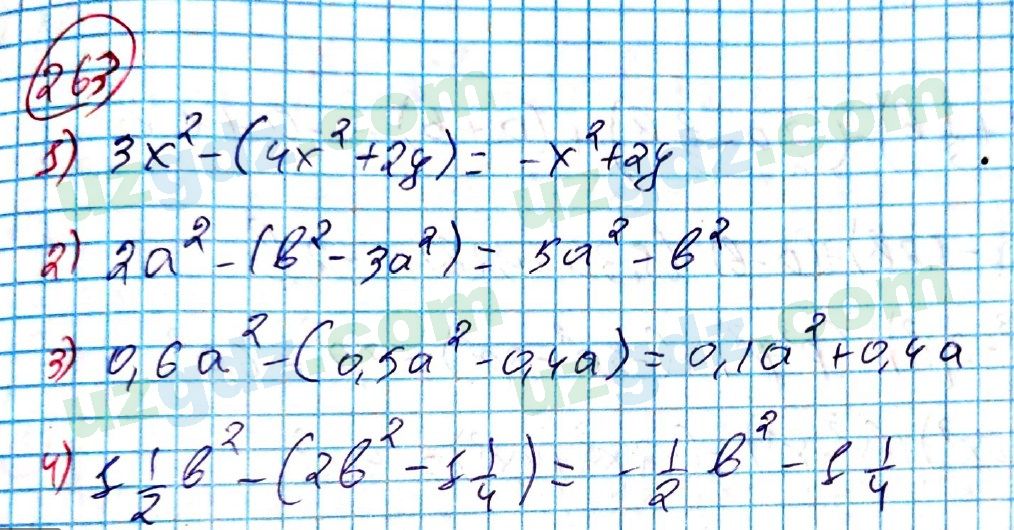 263
1) 3x² - (4x² + 2y) = -x² + 2y
2) 2a² - (b² - 3a²) = 5a² - b²
3) 0,6a² - (0,5a² - 0,4a) = 0,1a² + 0,4a
4) 1 1/2 b² - (2b² - 1 1/4) = - 1/2 b² - 1 1/4
uzgdz.com
uzgdz.com
uzgdz.com
uzgdz.com